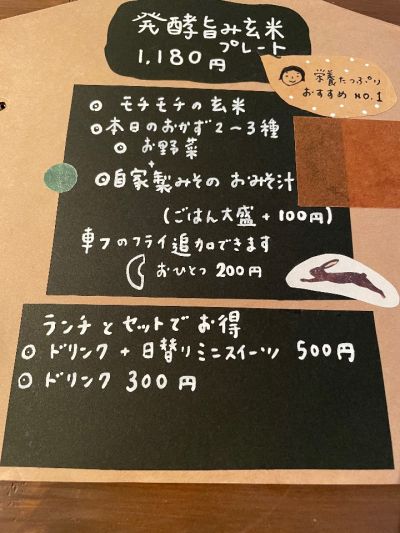 発酵旨み玄米
プレート
1,180円
栄養たっぷり
おすすめ NO.1
◎ モチモチの玄米
◎ 本日のおかず2〜3種
◎ お野菜
+
◎ 自家製みその おみそ汁
(ごはん大盛 +100円)
車フのフライ追加できます
おひとつ 200円
ランチとセットでお得
◎ ドリンク + 日替りミニスイーツ 500円
◎ ドリンク 300円